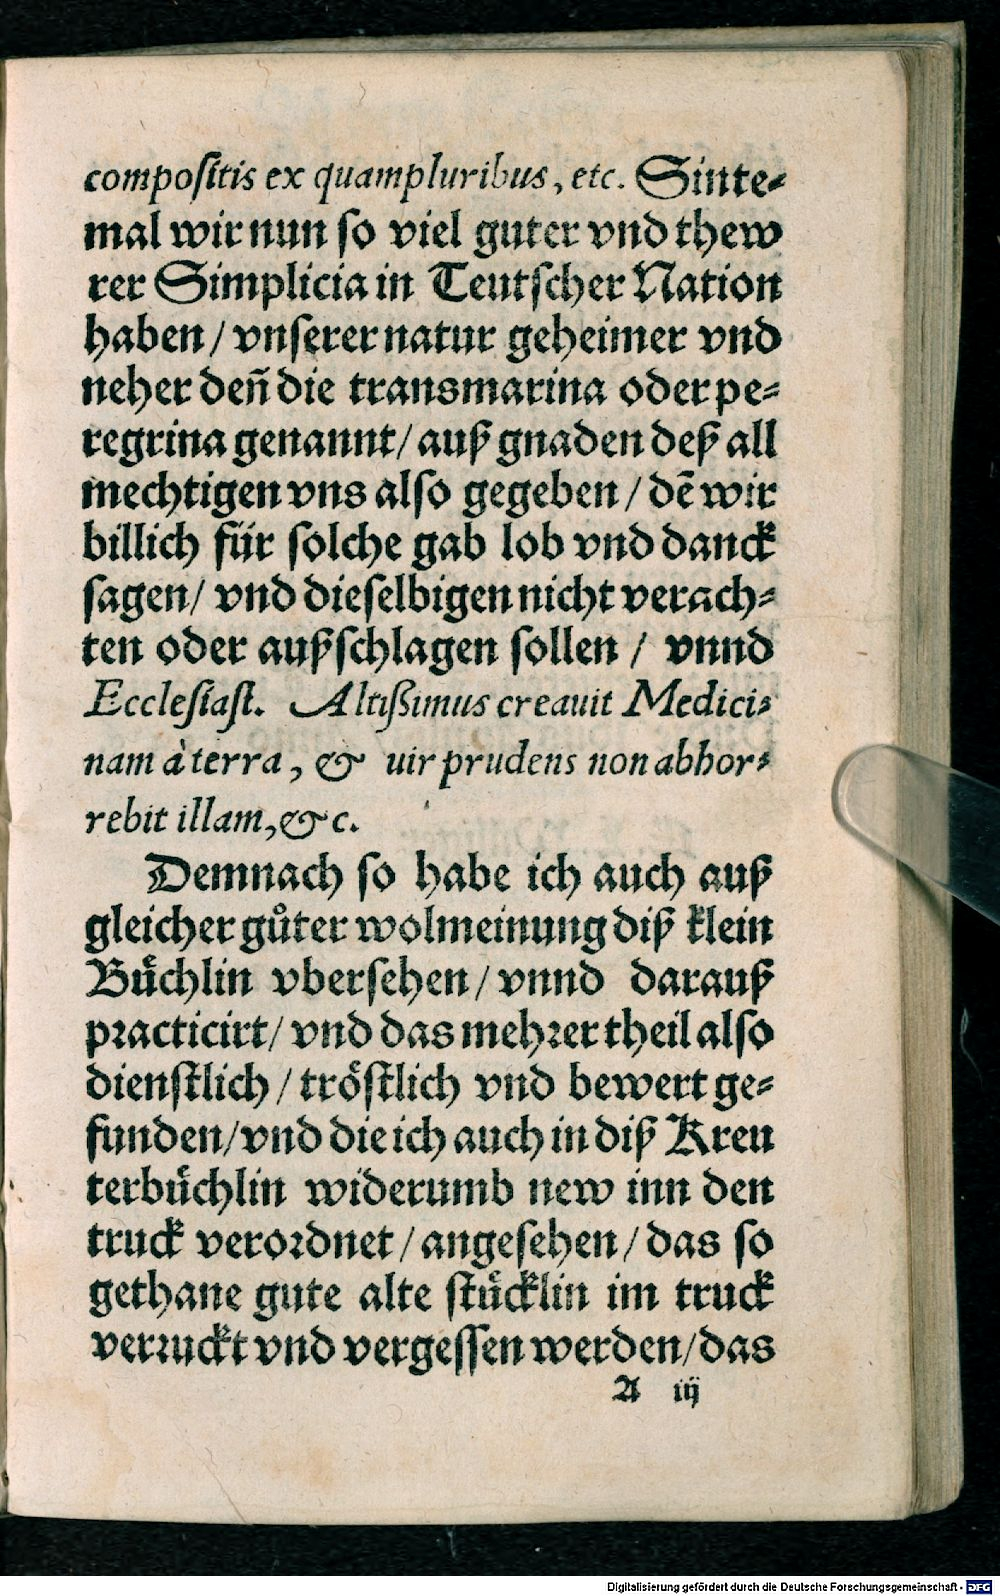 compositis ex quampluribus, etc. Sinte-
mal wir nun so viel guter vnd thew
rer Simplicia in Teutscher Nation
haben / vnserer natur geheimer vnd
neher deñ die transmarina oder pe-
regrina genannt / auß gnaden deß all
mechtigen vns also gegeben / dē wir
billich für solche gab lob vnd danck
sagen / vnd dieselbigen nicht verach-
ten oder außschlagen sollen / vnnd
Ecclesiast. Altißimus creauit Medici-
nam à terra, & uir prudens non abhor-
rebit illam, & c.
Demnach so habe ich auch auß
gleicher gůter wolmeinung diß klein
Bůchlin vbersehen / vnnd darauß
practicirt / vnd das mehrer theil also
dienstlich / tröstlich vnd bewert ge-
funden / vnd die ich auch in diß Kreu
terbůchlin widerumb new inn den
truck verordnet / angesehen / das so
gethane gute alte stücklin im truck
verruckt vnd vergessen werden / das
A iij
Digitalisierung gefördert durch die Deutsche Forschungsgemeinschaft - DFG